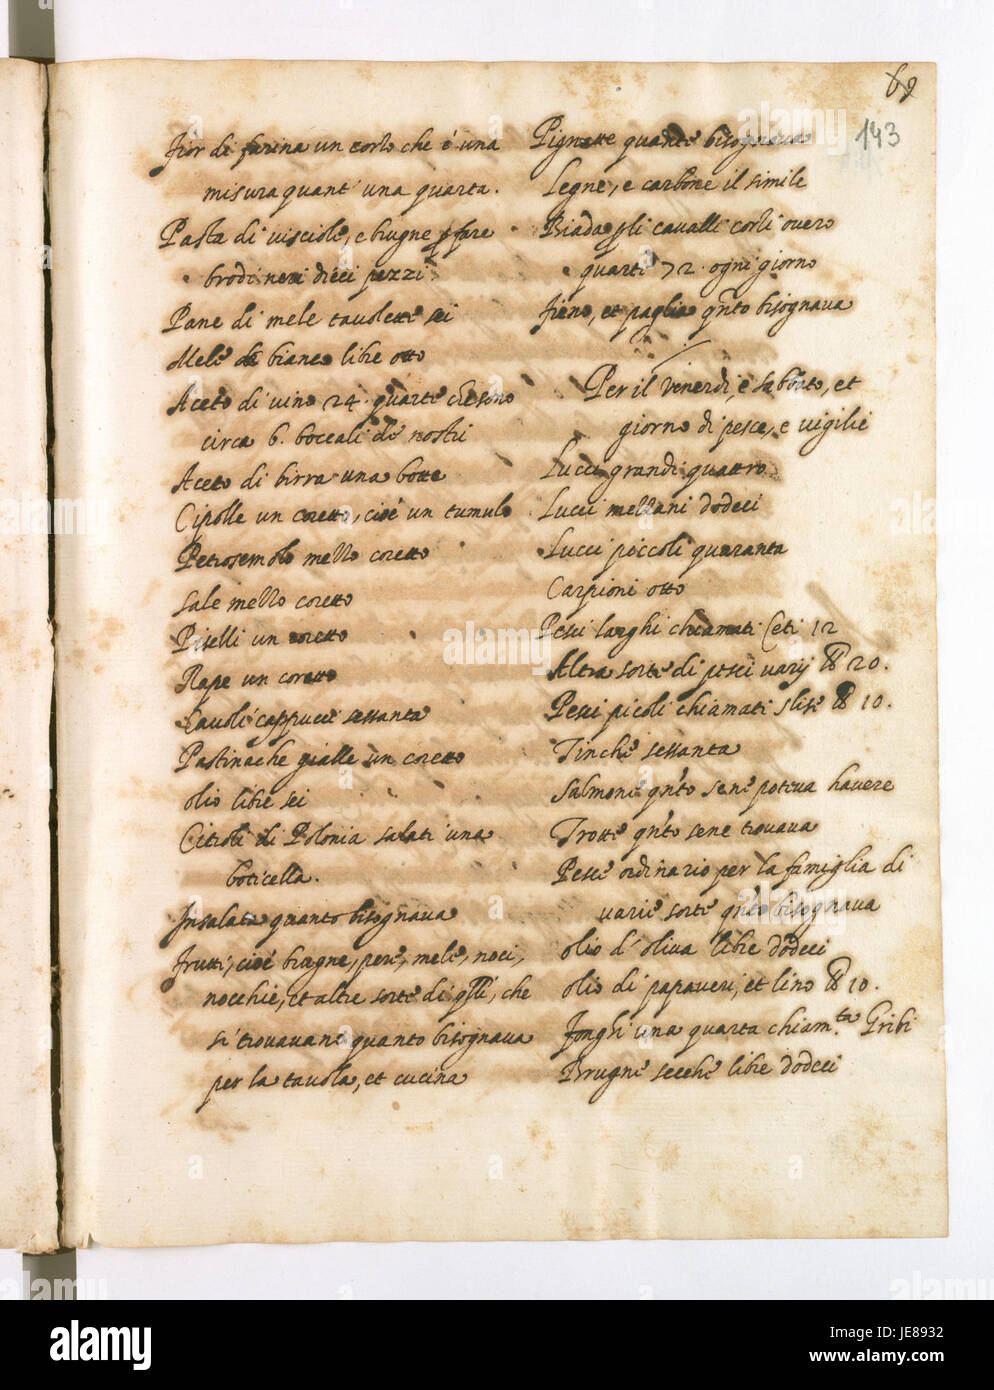 69
143
fior di farina un corto che è una
misura quant' una quarta.
Pasta di visciole, e brugne p fare
brodi neri dieci pezzi
Pane di mele tavolette sei
Mele di bianco libre otto
Aceto di vino 24. quarte che sono
circa 6. boccali de nostri
Aceto di birra una botte
Cipolle un coretto, cioè un tumulo
Petrosemolo mezzo coretto
Sale mezzo coretto
Piselli un coretto
Rape un coretto
Cavoli cappucci sessanta
Pastinache gialle un coretto
olio libre sei
Citrioli di Polonia salati una
boticella.
Insalata quanto bisognava
frutti, cioè brugne, pere, mele, noci,
nocchie, et altre sorte di qlli, che
si trovavano quanto bisognava
per la tavola, et cucina
Pignatte quante bisognava
Legne, e carbone il simile
Biada p li cavalli corti overo
quarti 72. ogni giorno
fieno, et paglia qnto bisognava
Per il Venerdi, e sabbato, et
giorno di pesce, e vigilie
Lucci grandi quattro
Lucci mezzani dodeci
Lucci piccoli quaranta
Carpioni otto
Pesci larghi chiamati Ceti 12
Altra sorte di pesci varij 20.
Pesci picoli chiamati slise 10.
Tinche sessanta
Salmone qnto se ne poteva havere
Trotte qnto se ne trovava
Pesce ordinario per la famiglia di
varie sorte qnto bisognava
olio d'oliva libre dodeci
olio di papaveri, et lino 10.
fonghi una quarta chiam.ta Gribi
Brugne secche libre dodeci
alamy
alamy
Image ID: JE8932
www.alamy.com